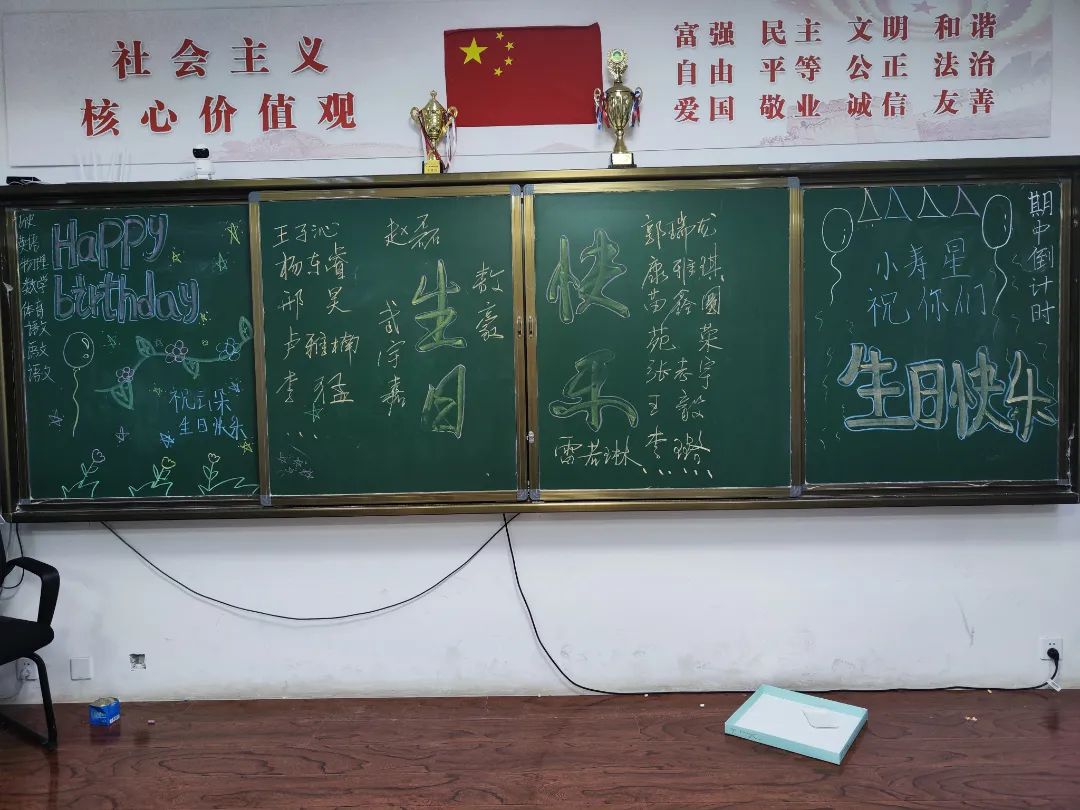 社会主义
核心价值观
富强 民主 文明 和谐
自由 平等 公正 法治
爱国 敬业 诚信 友善
英语
物理
数学
体育
语文
语文
Happy
birthday
祝云朵
生日快乐
王子沁
杨东睿
邢昊
卢雅楠
李猛
...
赵磊
武宇嘉
生日
敖豪
快乐
雷若琳
郭瑞龙
康雅琪
苗鑫圆
苑荣
张志宇
王毅
李璐
小寿星
祝你们
生日快乐
期中倒计时